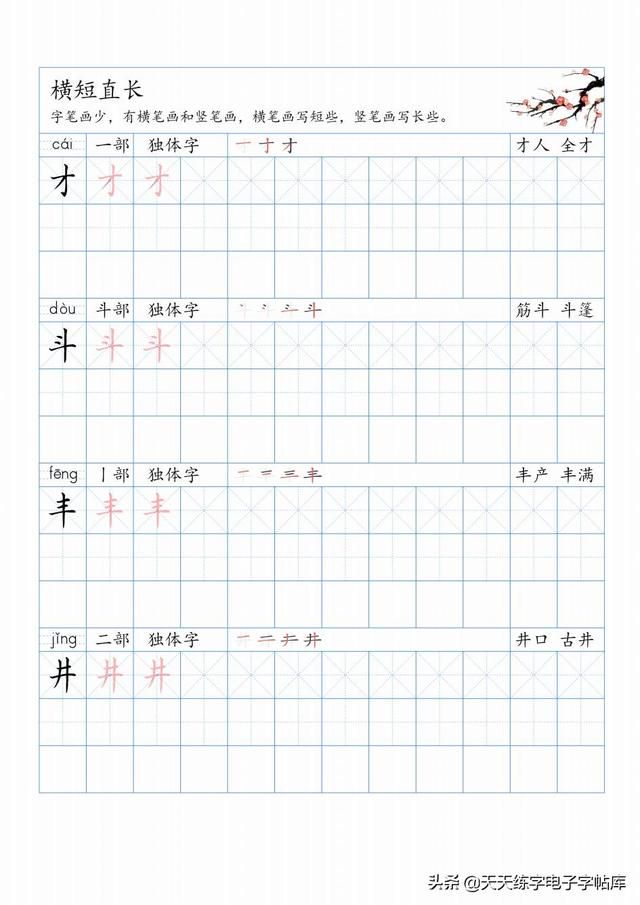 横短直长
字笔画少，有横笔画和竖笔画，横笔画写短些，竖笔画写长些。
cái 一部 独体字 一 十 才 才人 全才
才 才 才
dòu 斗部 独体字 斗 筋斗 斗篷
斗 斗 斗
fēng 丨部 独体字 一 二 三 丰 丰产 丰满
丰 丰 丰
jǐng 二部 独体字 一 二 井 井口 古井
井 井 井
头条 @天天练字电子字帖库